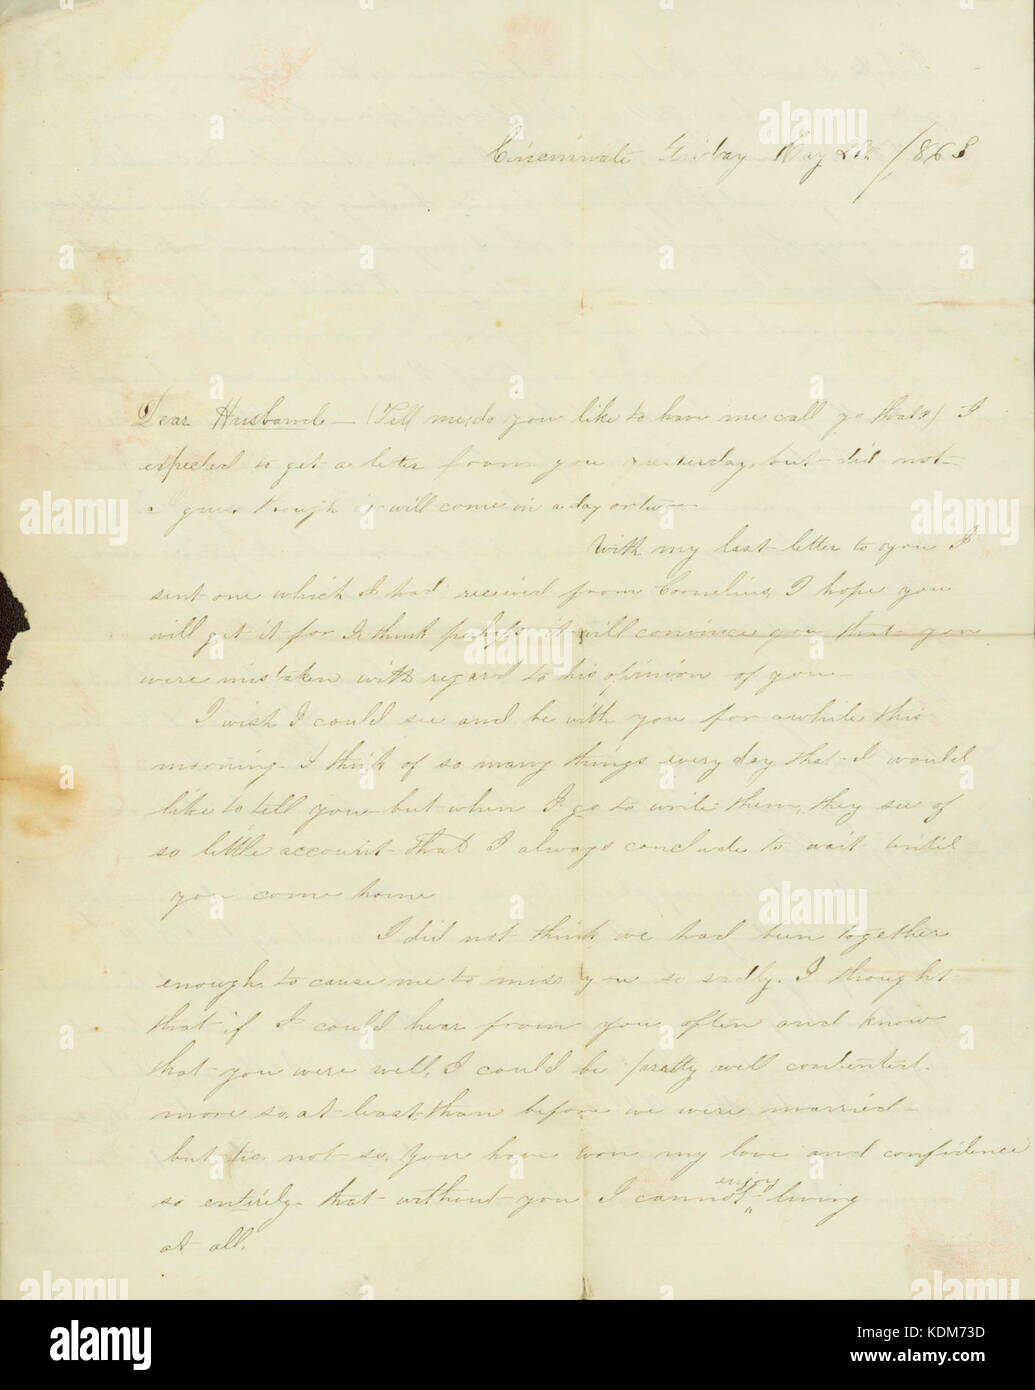 Cincinnati Friday May 1863
Dear Husband — (Tell me, do you like to have me call you that?) I
expected to get a letter from you yesterday, but did not
I guess though it will come in a day or two —
With my last letter to you I
sent one which I had received from Cornelius, I hope you
will get it for I think perhaps it will convince you that you
were mistaken with regard to his opinion of you —
I wish I could see and be with you for awhile this
morning. I think of so many things every day that I would
like to tell you but when I go to write them, they see of
so little account that I always conclude to wait until
you come home
I did not think we had been together
enough to cause me to miss you so sadly. I thought
that if I could hear from you often and know
that you were well, I could be pretty well contented.
more so, at least, than before we were married —
but tis not so. You have won my love and confidence
so entirely that without you I cannot enjoy living
at all.
alamy
a
www.alamy.com
Image ID: KDM73D